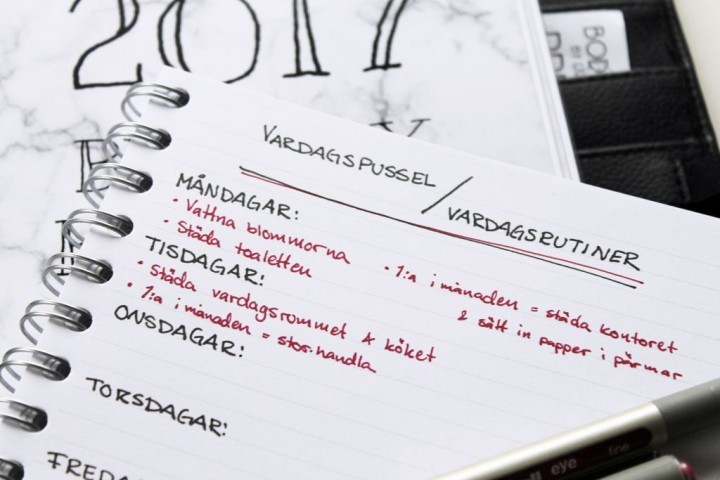 2017
BOD
VARDAGSPUSSEL / VARDAGSRUTINER
MÅNDAGAR:
• Vattna blommorna
• Städa toaletten
• 1:a i månaden = städa kontoret
& sätt in papper i pärmar
TISDAGAR:
• Städa vardagsrommet & köket
• 1:a i månaden = stor.handla
ONSDAGAR:
TORSDAGAR:
FREDA
eye fine